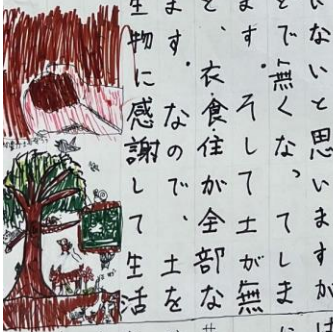 いないと思いますが
とで無くなってしま
ます。そして土が無
と、衣・食・住が全部な
ます。なので、土を
生物に感謝して生活